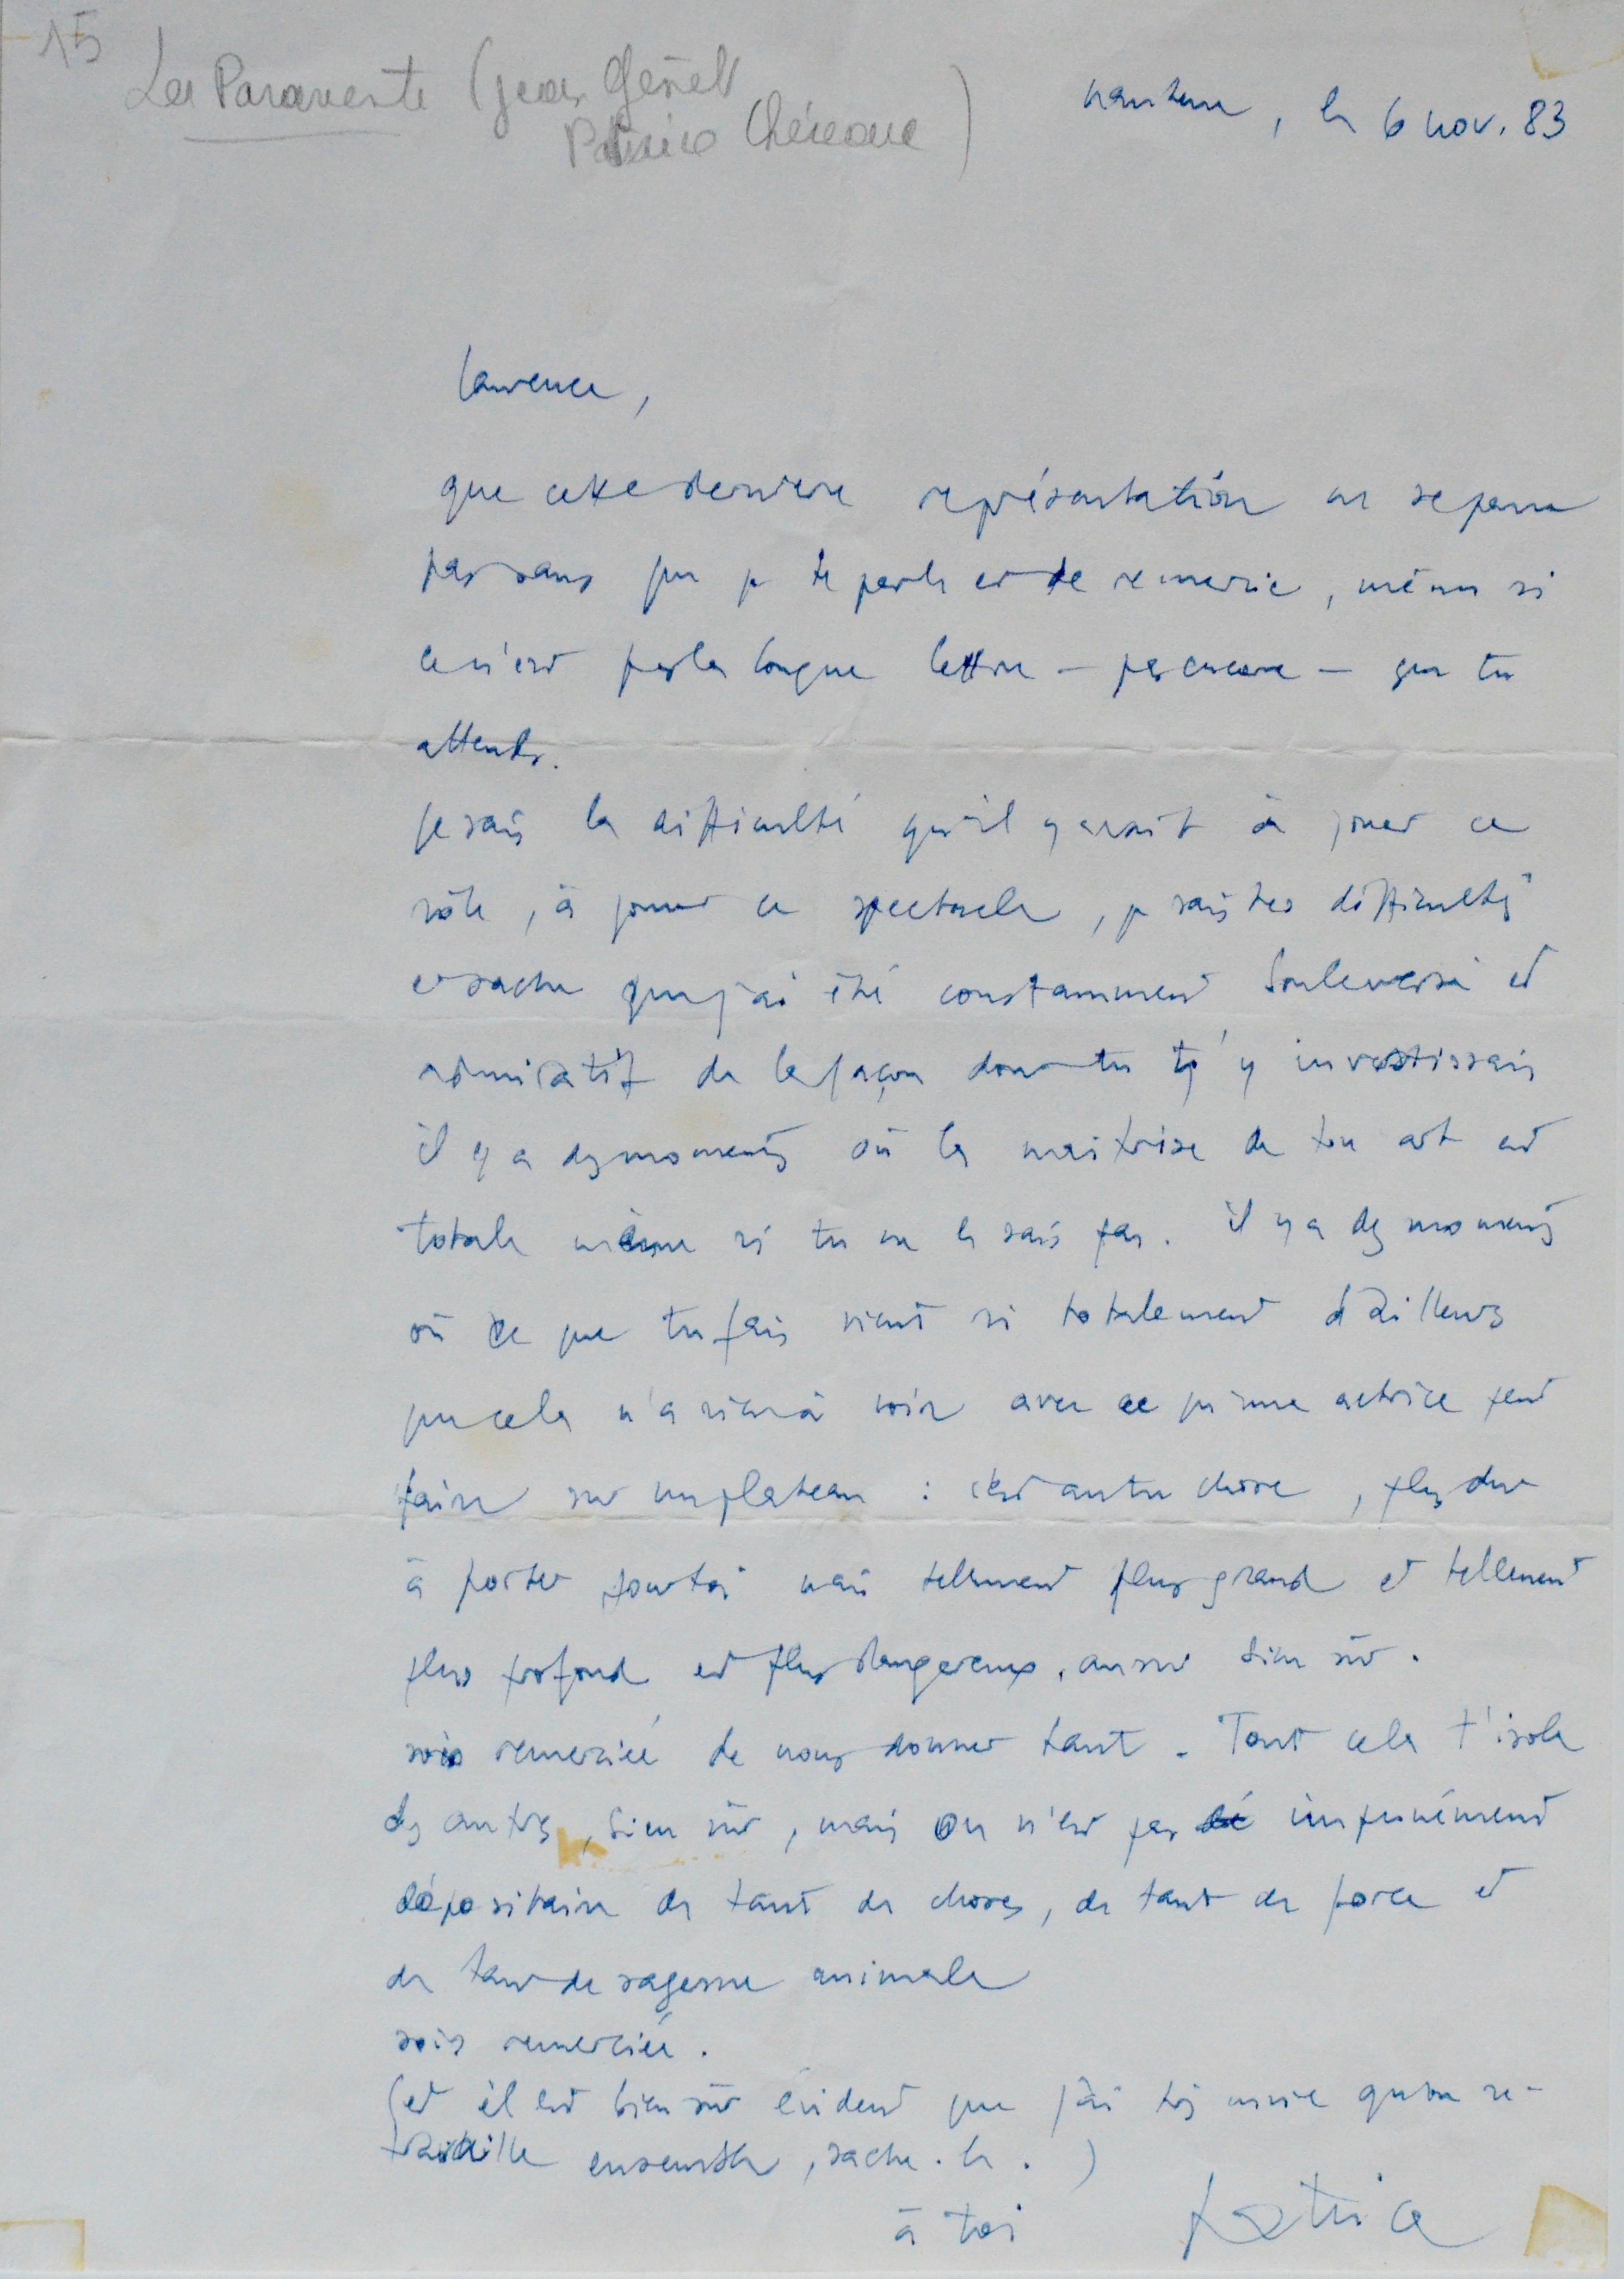 15
Les Paravents (Jean Genet
Patrice Chéreau)
nanterre, le 6 nov. 83
laurence,
que cette derniere représentation ne se passe
pas sans que je te parle et te remercie, même si
ce n'est pas la longue lettre – pas encore – que tu
attends.
je sais la difficulté qu'il y avait à jouer ce
rôle, à jouer ce spectacle, je sais tes difficultés
et sache que j'ai été constamment bouleversé et
admiratif de la façon dont tu t'y investissais
il y a des moments où la maitrise de ton art est
totale même si tu ne le sais pas. il y a des moments
où ce que tu fais vient si totalement d'ailleurs
que cela n'a rien à voir avec ce qu'une actrice peut
faire sur un plateau : c'est autre chose, plus dur
à porter pour toi mais tellement plus grand et tellement
plus profond et plus dangereux, aussi bien sûr.
sois remerciée de nous donner tant. Tout cela t'isole
des autres, bien sûr, mais on n'est pas impunément
dépositaire de tant de choses, de tant de force et
de tant de sagesse animale
sois remerciée.
(et il est bien sûr évident que j'ai très envie qu'on re-
travaille ensemble, sache-le.)
à toi patrice